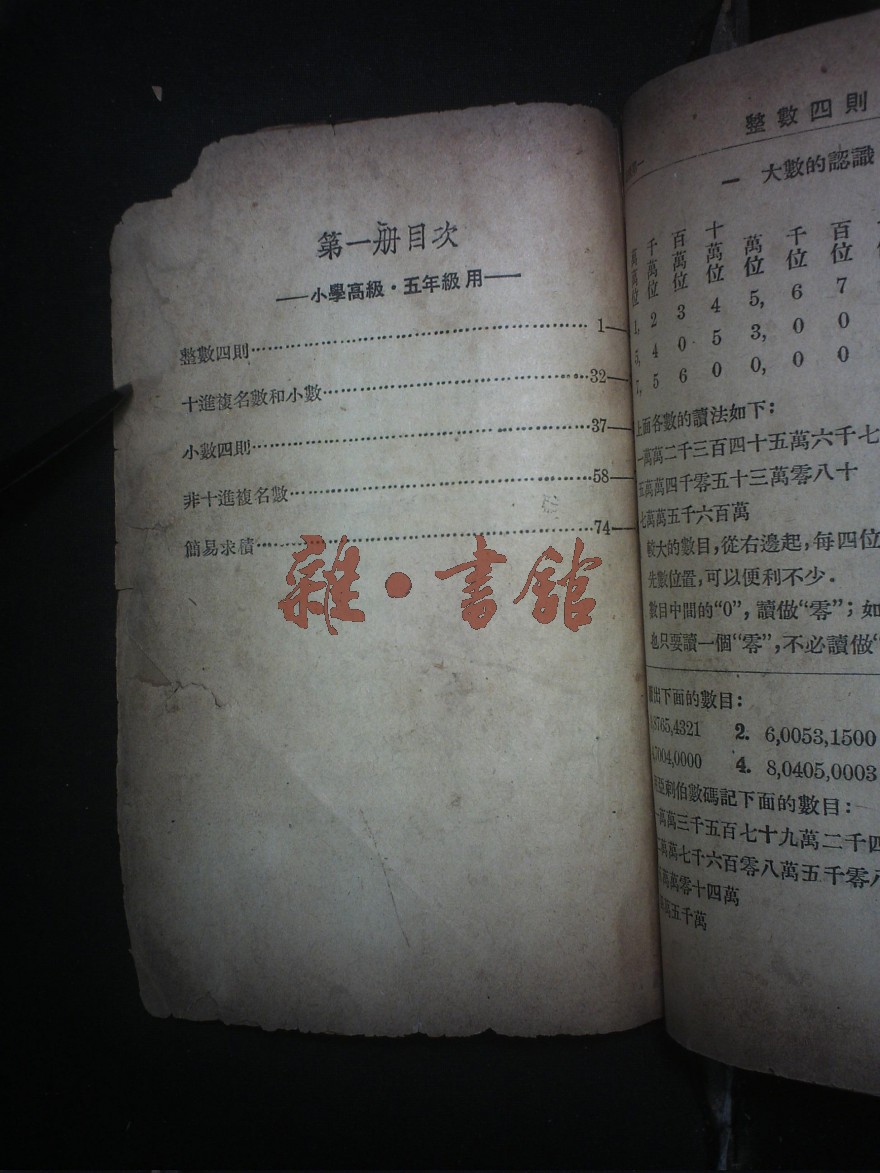 第一册目次
——小學高級·五年級用——
整數四則……1—
十進複名數和小數……32—
小數四則……37—
非十進複名數……58—
簡易求積……74—
雜·書館
整數四則
一 大數的認識
萬萬位 千萬位 百萬位 十萬位 萬位 千位 百位
1, 2 3 4 5, 6 7
5, 4 0 5 3, 0 0
7, 5 6 0 0, 0 0
上面各數的讀法如下：
一萬萬二千三百四十五萬六千七
五萬萬四千零五十三萬零八十
七萬萬五千六百萬
較大的數目，從右邊起，每四位
先數位置，可以便利不少。
數目中間的“0”，讀做“零”；如
也只要讀一個“零”，不必讀做“
出下面的數目：
8765,4321 2. 6,0053,1500
7004,0000 4. 8,0405,0003
亞剌伯數碼記下面的數目：
萬萬三千五百七十九萬二千四
萬萬七千六百零八萬五千零八
萬萬零十四萬
萬五千萬